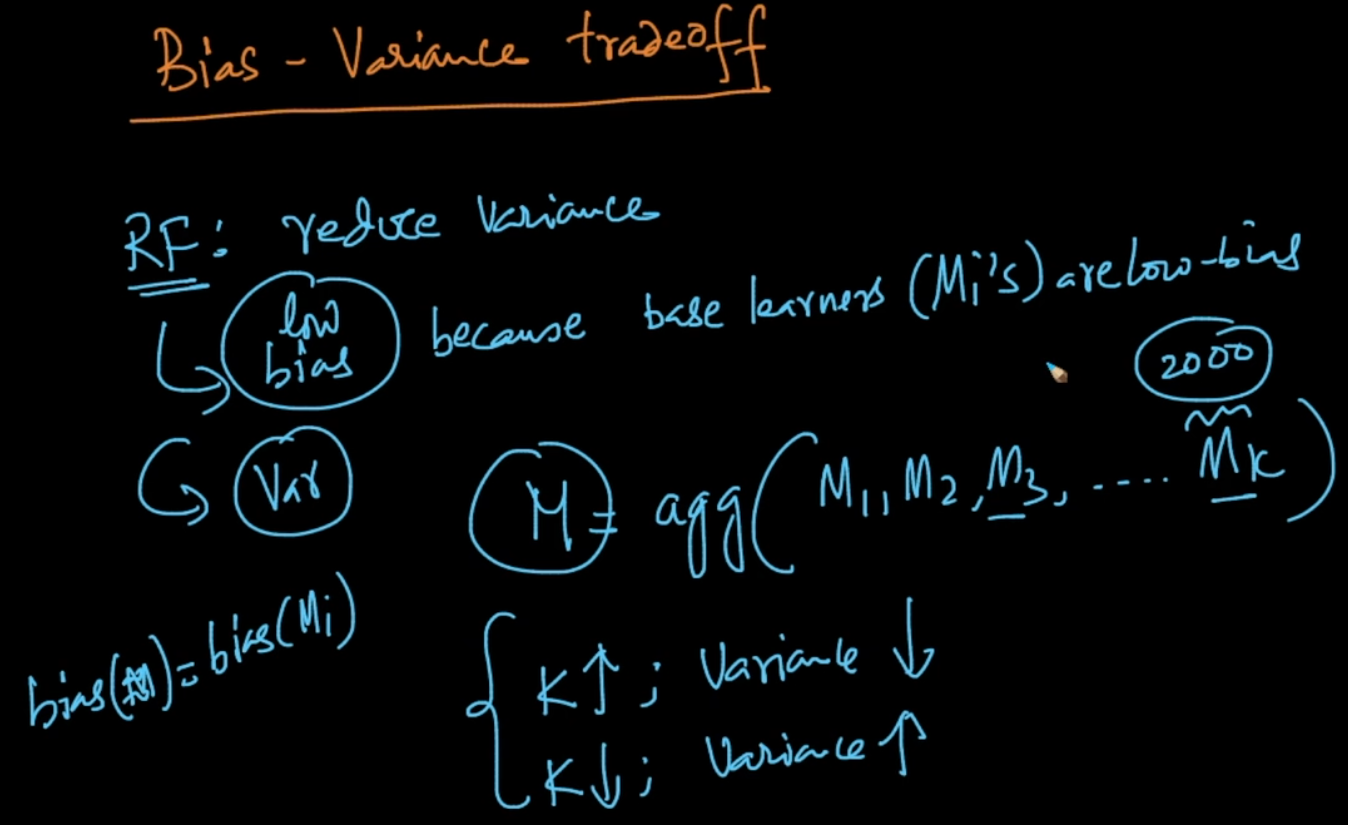 Bias - Variance tradeoff
RF: reduce Variance
low bias because base learners (Mi's) are low-bias
2000
Var
M = agg(M1, M2, M3, .... MK)
bias(M) = bias(Mi)
K↑; Variance ↓
K↓; Variance ↑